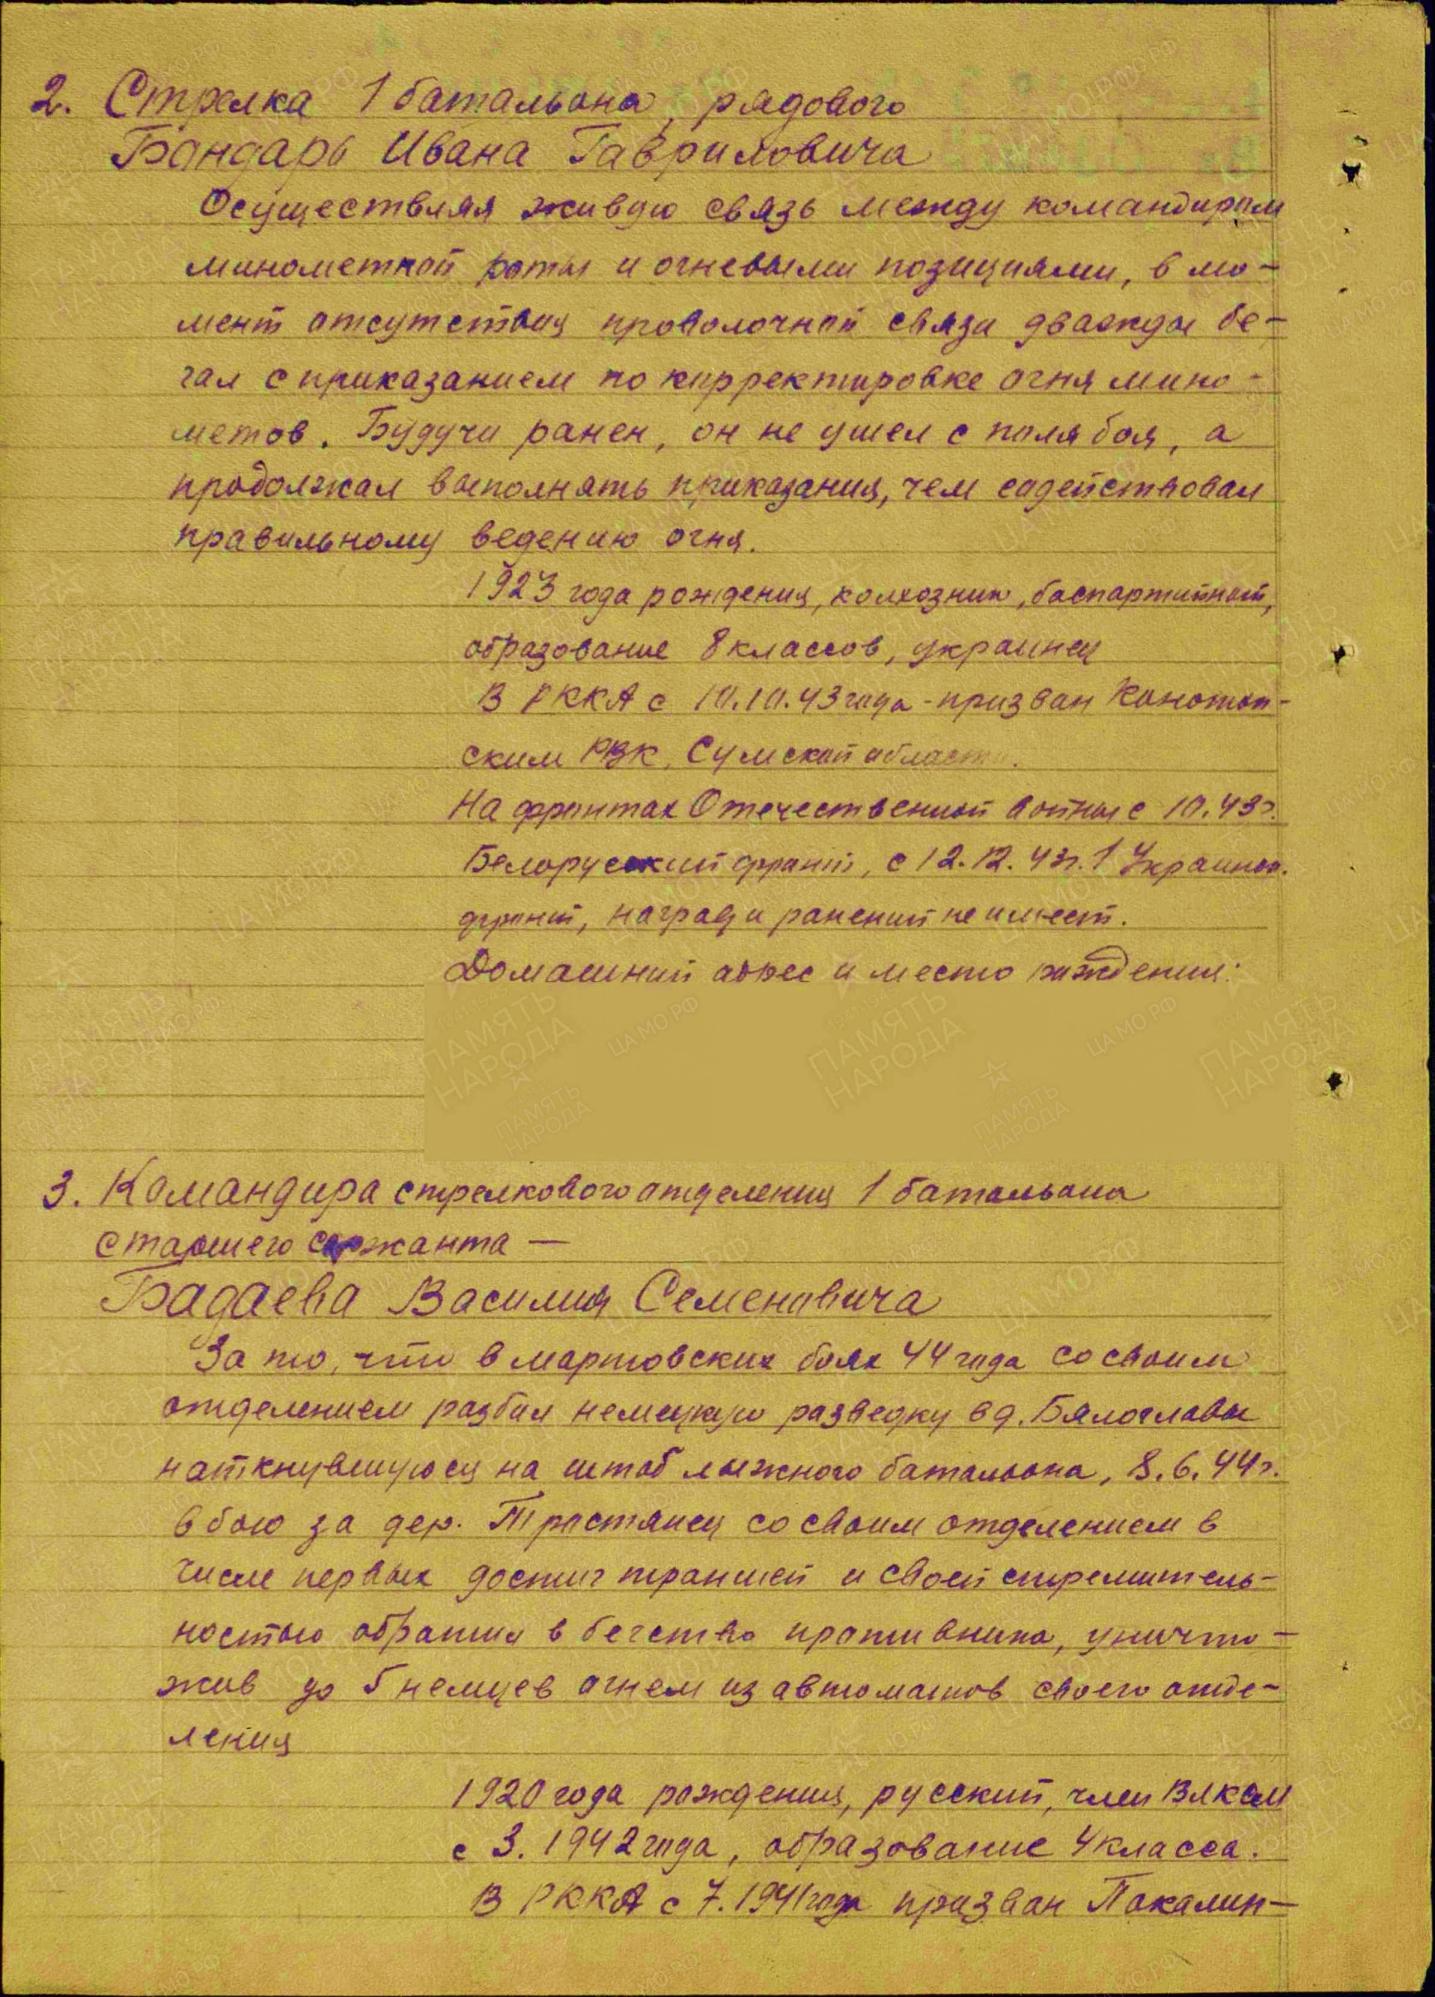 2. Стрелка 1 батальона, рядового
Бондарь Ивана Гавриловича
Осуществляя живую связь между командиром
минометной роты и огневыми позициями, в мо-
мент отсутствия проволочной связи дважды бе-
гал с приказанием по корректировке огня мино-
метов. Будучи ранен, он не ушел с поля боя, а
продолжал выполнять приказания, чем содействовал
правильному ведению огня.
1923 года рождения, колхозник, беспартийный,
образование 8 классов, украинец
В РККА с 10.10.43 года - призван Конотоп-
ским РВК, Сумской области.
На фронтах Отечественной войны с 10.43г.
Белорусский фронт, с 12.12.43г. 1 Украинск.
фронт, наград и ранений не имеет.
Домашний адрес и место рождения:
3. Командира стрелкового отделения 1 батальона
старшего сержанта —
Бадаева Василия Семеновича
За то, что в мартовских боях 44 года со своим
отделением разбил немецкую разведку в д. Бялоглавы
наткнувшуюся на штаб лыжного батальона, 8.6.44г.
в бою за дер. Тростянец со своим отделением в
числе первых достиг траншей и своей стремитель-
ностью обратил в бегство противника, уничто-
жив до 5 немцев огнем из автоматов своего отде-
ления
1920 года рождения, русский, член ВЛКСМ
с 3.1942 года, образование 4 класса.
В РККА с 7.1941 года призван Покалин-
ПАМЯТЬ НАРОДА
ЦА МО РФ